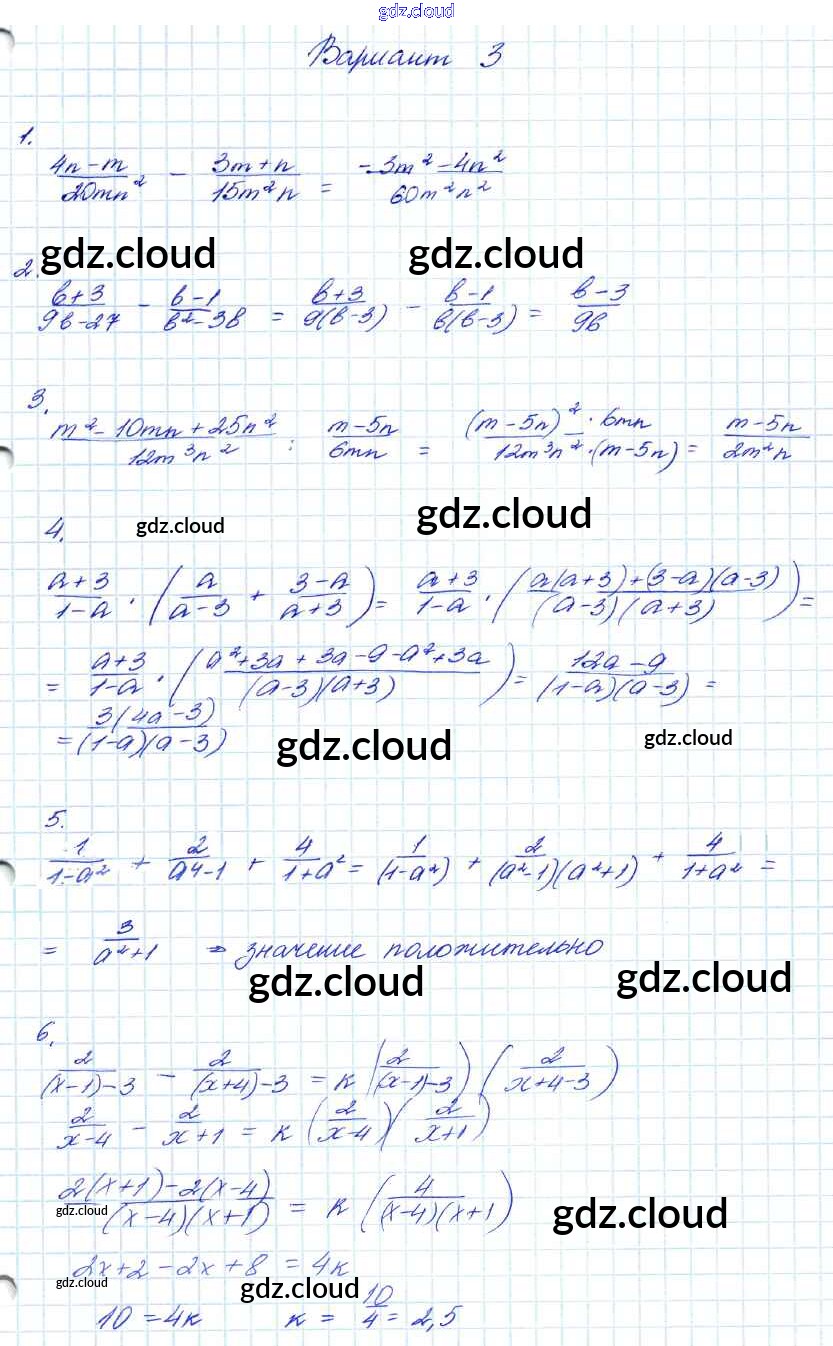 gdz.cloud
Вариант 3
1.
(4n-m)/(20mn²) - (3m+n)/(15m²n) = (-3m²-4n²)/(60m²n²)
gdz.cloud gdz.cloud
2.
(b+3)/(9b-27) - (b-1)/(b²-3b) = (b+3)/(9(b-3)) - (b-1)/(b(b-3)) = (b-3)/(9b)
3.
(m²-10mn+25n²)/(12m³n²) : (m-5n)/(6mn) = ((m-5n)²·6mn)/(12m³n²·(m-5n)) = (m-5n)/(2m²n)
4. gdz.cloud gdz.cloud
(a+3)/(1-a) · (a/(a-3) + (3-a)/(a+3)) = (a+3)/(1-a) · ((a(a+3)+(3-a)(a-3))/((a-3)(a+3))) =
= (a+3)/(1-a) · ((a²+3a+3a-9-a²+3a)/((a-3)(a+3))) = (12a-9)/((1-a)(a-3)) =
= (3(4a-3))/((1-a)(a-3)) gdz.cloud gdz.cloud
5.
1/(1-a²) + 2/(a⁴-1) + 4/(1+a²) = 1/(1-a²) + 2/((a²-1)(a²+1)) + 4/(1+a²) =
= 3/(a²+1) → значение положительно
gdz.cloud gdz.cloud
6.
2/((x-1)-3) - 2/((x+4)-3) = к (2/((x-1)-3)) (2/(x+4-3))
2/(x-4) - 2/(x+1) = к (2/(x-4)) (2/(x+1))
(2(x+1)-2(x-4))/((x-4)(x+1)) = к (4/((x-4)(x+1)))
gdz.cloud gdz.cloud
2x+2-2x+8 = 4к
gdz.cloud gdz.cloud
10 = 4к к = 10/4 = 2,5